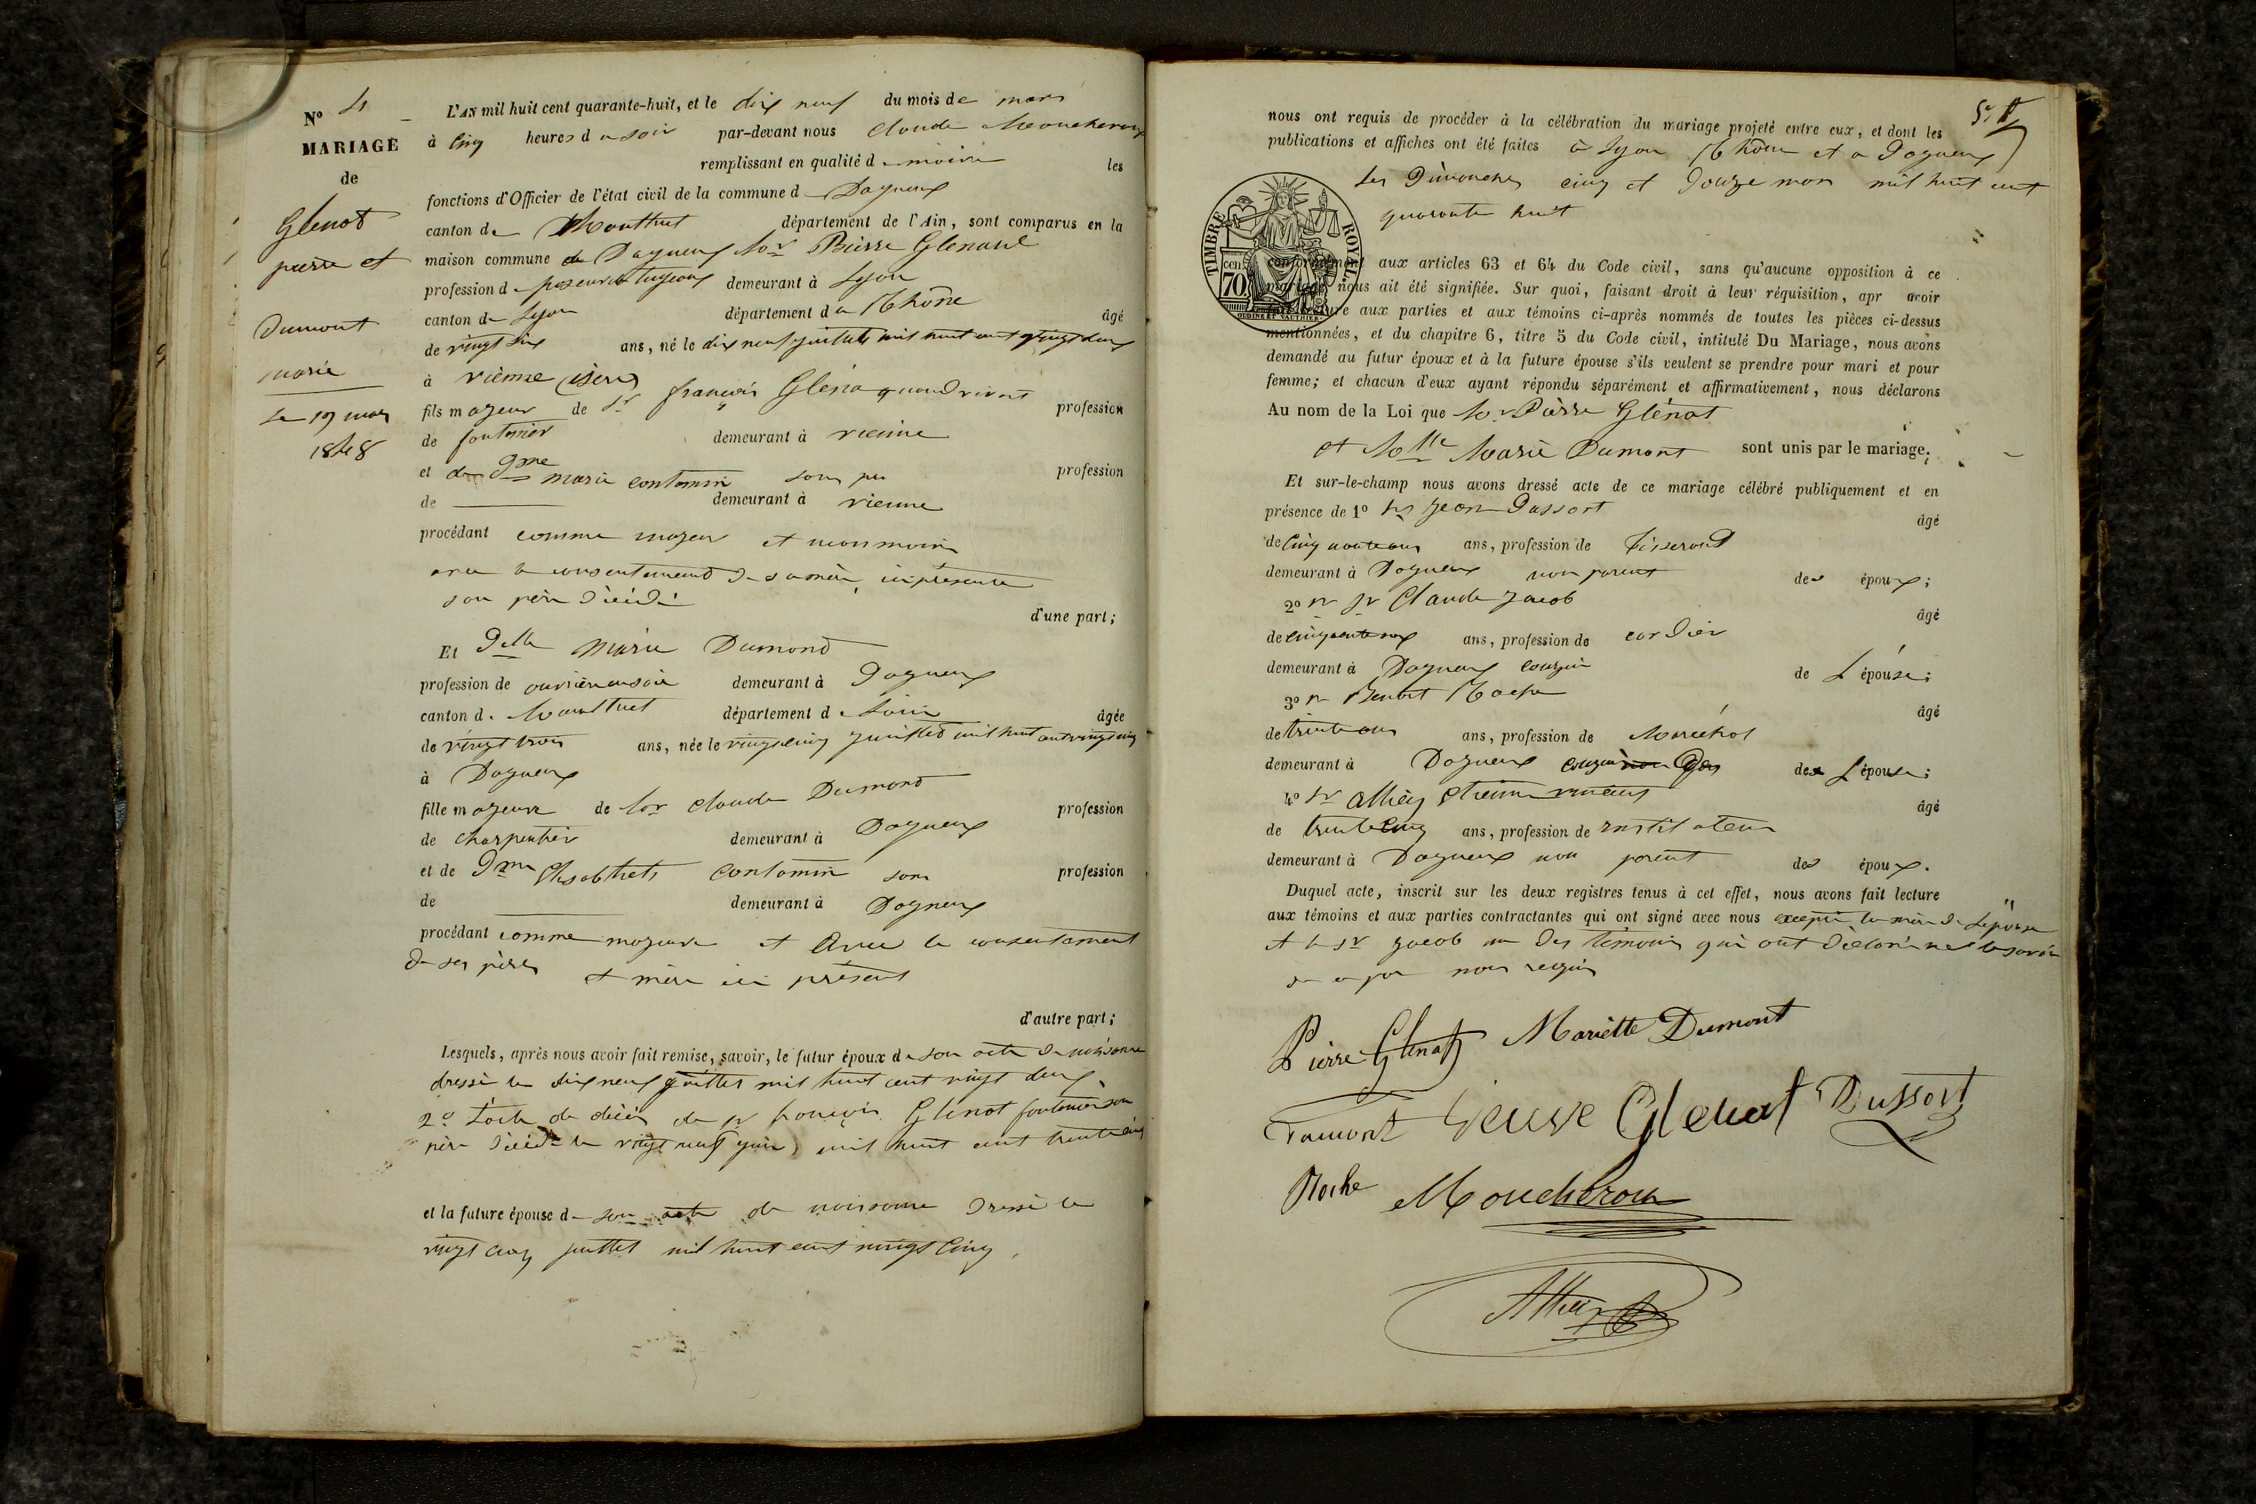 N° 4
MARIAGE
de
Glenot
pierre et
Dumont
marie
Le 19 mars
1848
L'AN mil huit cent quarante-huit, et le dix neuf du mois de mars
à cinq heures du soir par-devant nous Claude Moucheroux
remplissant en qualité de maire les
fonctions d'Officier de l'état civil de la commune de Dagneux
canton de Montluel département de l'Ain, sont comparus en la
maison commune de Dagneux Mr Pierre Glenaul
profession de demeurant à Lyon
canton de Lyon département du Rhône âgé
de vingt six ans, né le dix neuf juillet mil huit cent vingt deux
à vienne (isère)
fils majeur de Sr françois Glénot quand vivait profession
de fontenier demeurant à vienne
et de Dme marie contamin sans profession
de demeurant à vienne
procédant comme majeur et
avec le consentement de sa mère ici présente
son père décédé
d'une part;
Et Delle Marie Dumond
profession de ouvrière en soie demeurant à Dagneux
canton de Montluel département de Lain âgée
de vingt trois ans, née le vingt cinq juillet mil huit cent vingt cinq
à Dagneux
fille majeure de Mr Claude Dumond profession
de charpentier demeurant à Dagneux
et de Dme Elisabeth contamin sans profession
de demeurant à Dagneux
procédant comme majeure et avec le consentement
de ses pères et mère ici présent
d'autre part;
Lesquels, après nous avoir fait remise, savoir, le futur époux de son acte de naissance
dressé le dix neuf juillet mil huit cent vingt deux
2° l'acte de décès de Sr françois Glénot fontenier son
père décédé le vingt neuf juin mil huit cent trente
et la future épouse de son acte de naissance dressé le
vingt cinq juillet mil huit cent vingt cinq
nous ont requis de procéder à la célébration du mariage projeté entre eux, et dont les
publications et affiches ont été faites à Lyon Rhône et a Dagneux
les Dimanches cinq et douze mars mil huit cent
quarante huit
TIMBRE ROYAL
cen.
70
conformément aux articles 63 et 64 du Code civil, sans qu'aucune opposition à ce
mariage nous ait été signifiée. Sur quoi, faisant droit à leur réquisition, apr avoir
lecture aux parties et aux témoins ci-après nommés de toutes les pièces ci-dessus
mentionnées, et du chapitre 6, titre 5 du Code civil, intitulé Du Mariage, nous avons
demandé au futur époux et à la future épouse s'ils veulent se prendre pour mari et pour
femme; et chacun d'eux ayant répondu séparément et affirmativement, nous déclarons
Au nom de la Loi que Mr Pierre Glénat
et Melle Marie Dumont sont unis par le mariage;
Et sur-le-champ nous avons dressé acte de ce mariage célébré publiquement et en
présence de 1° Jean Dussort âgé
de cinquante ans, profession de Tisserand
demeurant à Dagneux non parent des époux;
2° Sr Claude Jacob âgé
de ans, profession de cordier
demeurant à Dagneux cousin de L'épouse;
3° Benoit Roche âgé
de trente ans, profession de Maréchal
demeurant à Dagneux cousin de L'épouse;
4° Sr Etienne âgé
de trente cinq ans, profession de instituteur
demeurant à Dagneux non parent des époux.
Duquel acte, inscrit sur les deux registres tenus à cet effet, nous avons fait lecture
aux témoins et aux parties contractantes qui ont signé avec nous excepté la mère de L'épouse
et le Sr Jacob un des témoins qui ont déclaré ne le savoir
de ce par nous requis
Pierre Glénat Mariette Dumont
Dumont veuve Glenat Dussort
Roche Moucheroux